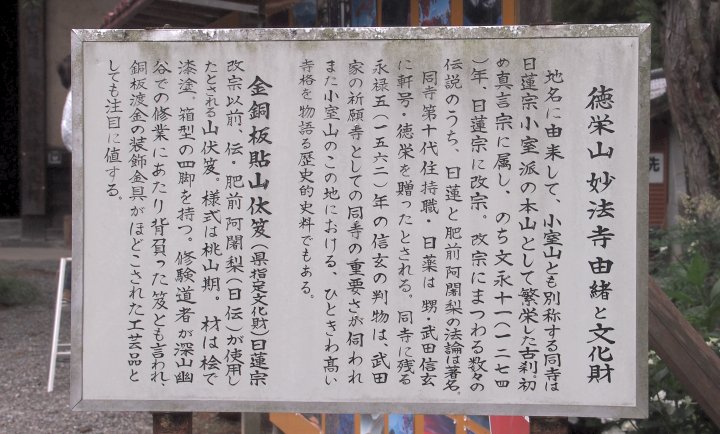 徳栄山妙法寺由緒と文化財
地名に由来して、小室山とも別称する同寺は
日蓮宗小室派の本山として繁栄した古刹。初
め真言宗に属し、のち文永十一(一二七四
)年、日蓮宗に改宗。改宗にまつわる数々の
伝説のうち、日蓮と肥前阿闍梨の法論は著名。
同寺第十代住持職・日薬は甥、武田信玄
に軒号・徳栄を贈ったとされる。同寺に残る
永禄五(一五六二)年の信玄の判物は、武田
家の祈願寺としての同寺の重要さが伺われ
また小室山のこの地における、ひときわ高い
寺格を物語る歴史的史料でもある。
金銅板貼山伏笈(県指定文化財)日蓮宗
改宗以前、伝・肥前阿闍梨(日伝)が使用し
たとされる山伏笈。様式は桃山期。材は桧で
漆塗、箱型の四脚を持つ。修験道者が深山幽
谷での修業にあたり背負った笈とも言われ、
銅板渡金の装飾金具がほどこされた工芸品と
しても注目に値する。
先